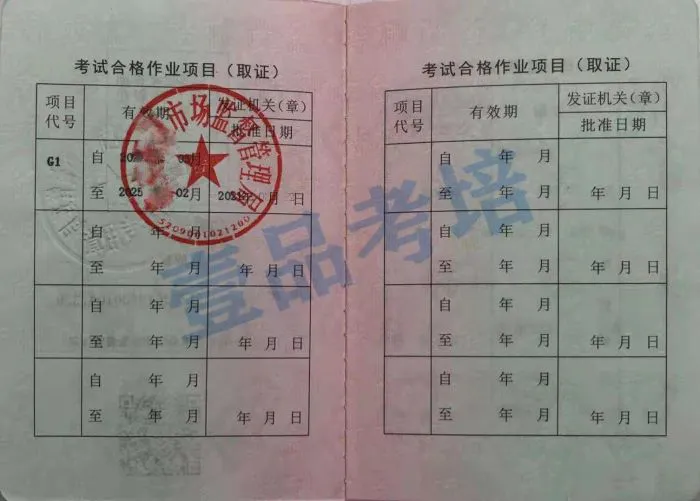 考试合格作业项目（取证）
项目代号 有效期 发证机关(章)
批准日期
G1 自 03月
至 2025 02月 2021 月 日
自 年 月
至 年 月 年 月 日
自 年 月
至 年 月 年 月 日
自 年 月
至 年 月 年 月 日
市场监督管理局
5209001021200
考试合格作业项目（取证）
项目代号 有效期 发证机关(章)
批准日期
自 年 月
至 年 月 年 月 日
自 年 月
至 年 月 年 月 日
自 年 月
至 年 月 年 月 日
自 年 月
至 年 月 年 月 日
壹品考培